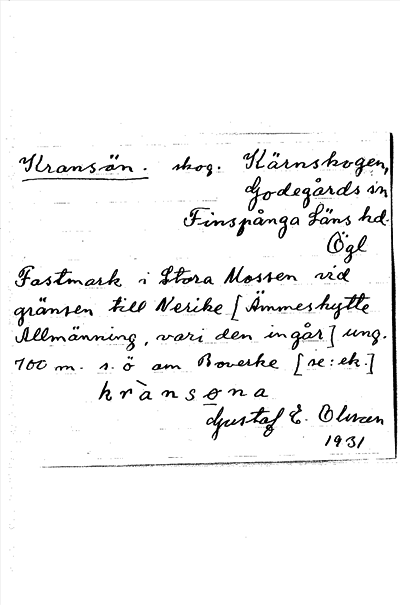 Kransön. skog. Kärnskogen,
Godegårds sn
Finspånga Läns hd.
Ögl
Fastmark i Stora Mossen vid
gränsen till Nerike [Ämmeshytte
Allmänning, vari den ingår] ung.
700 m. s. ö om Boverke [se: ek.]
krànso̲na
Gustaf E. Olsson
1931